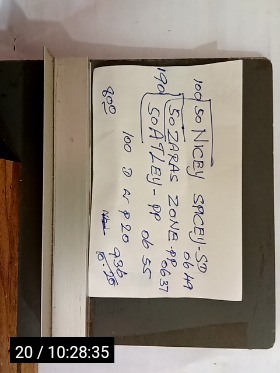 100 50 NICEY SPCEY-SD 06 49
190 50 ZARAS ZONE-PP 0637
50 ATLEY-PP 06 55
800 100 D N P 20 936
20 / 10:28:35